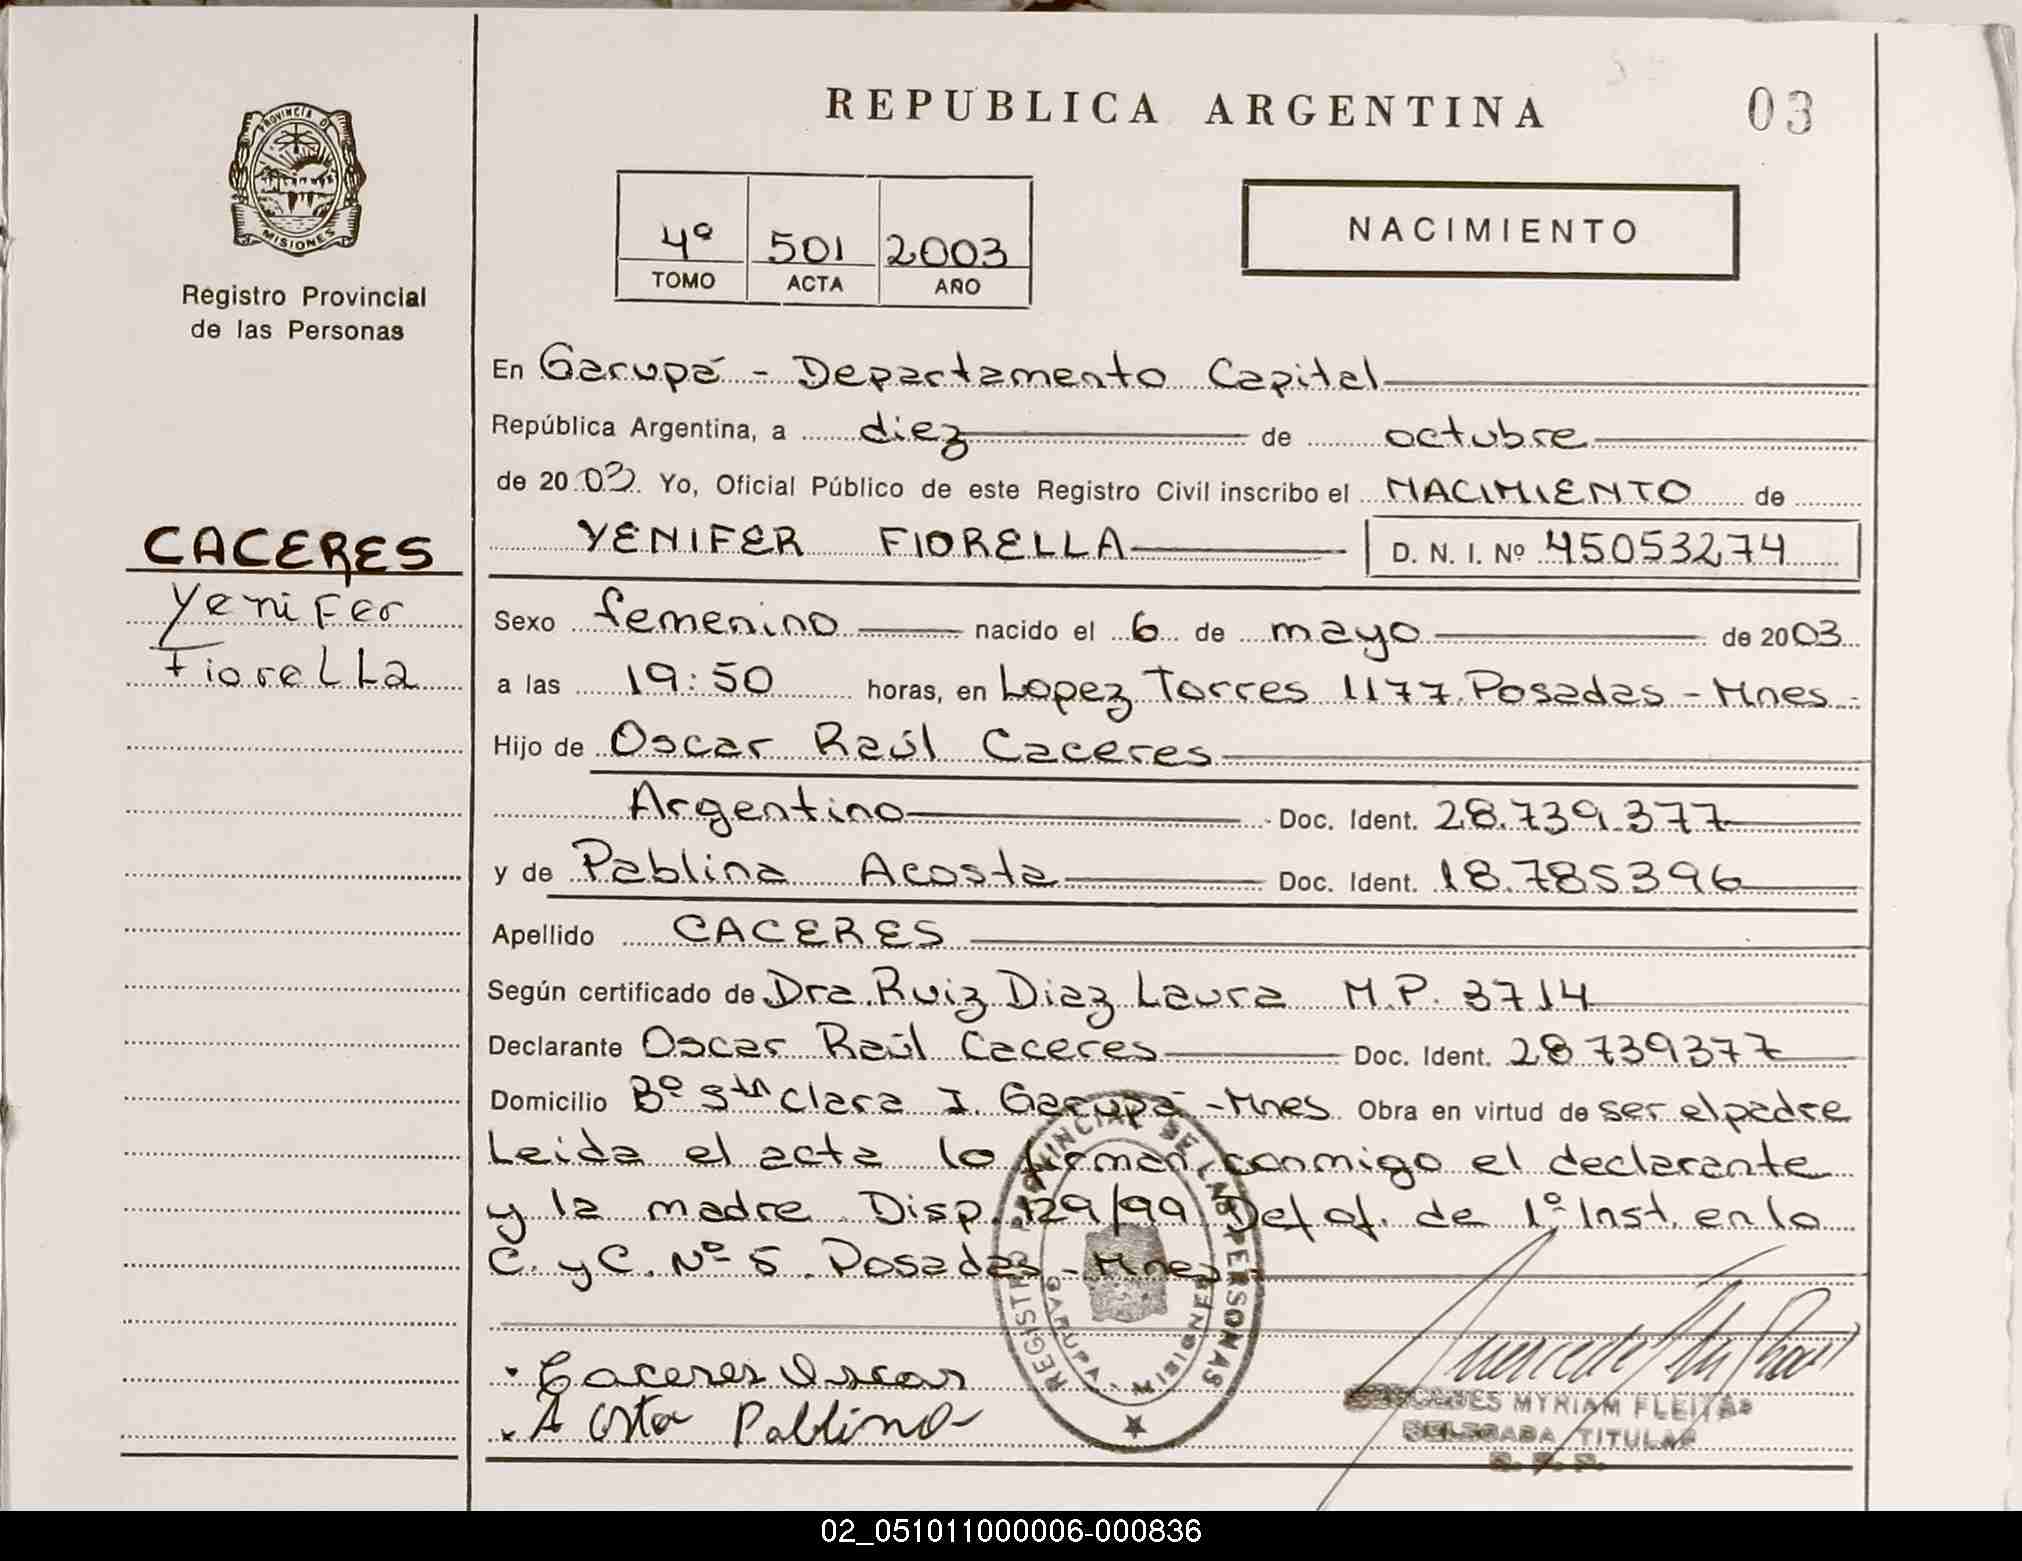 REPUBLICA ARGENTINA
03
PROVINCIA DE
MISIONES
Registro Provincial
de las Personas
4º 501 2003
TOMO ACTA AÑO
NACIMIENTO
En Garupá - Departamento Capital
República Argentina, a diez de octubre
de 2003. Yo, Oficial Público de este Registro Civil inscribo el NACIMIENTO de
YENIFER FIORELLA D. N. I. Nº 45053274
CACERES
Yenifer
Fiorella
Sexo femenino nacido el 6 de mayo de 2003
a las 19:50 horas, en Lopez Torres 1177. Posadas - Mnes.
Hijo de Oscar Raúl Caceres
Argentino Doc. Ident. 28.739.377
y de Pablina Acosta Doc. Ident. 18.785396
Apellido CACERES
Según certificado de Dra. Ruiz Diaz Laura M.P. 3714
Declarante Oscar Raúl Caceres Doc. Ident. 28739377
Domicilio Bº Sta Clara I. Garupá - Mnes Obra en virtud de ser el padre
Leida el acta lo firman conmigo el declarante
y la madre. Disp. 129/99 Def of. de 1º Inst. en lo
C. y C. Nº 5. Posadas - Mnes
REGISTRO PROVINCIAL DE LAS PERSONAS
GARUPA
Caceres Oscar
Acosta Pablina
MERCEDES MYRIAM FLEITAS
DELEGADA TITULAR
R. P. P.
02_051011000006-000836